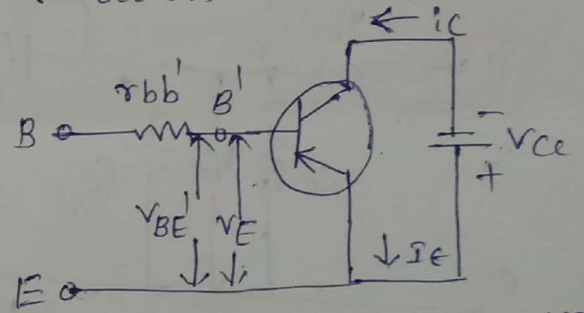 ← ic
rbb'
B'
B
-
Vcc
+
VBE'
VE
↓ IE
E